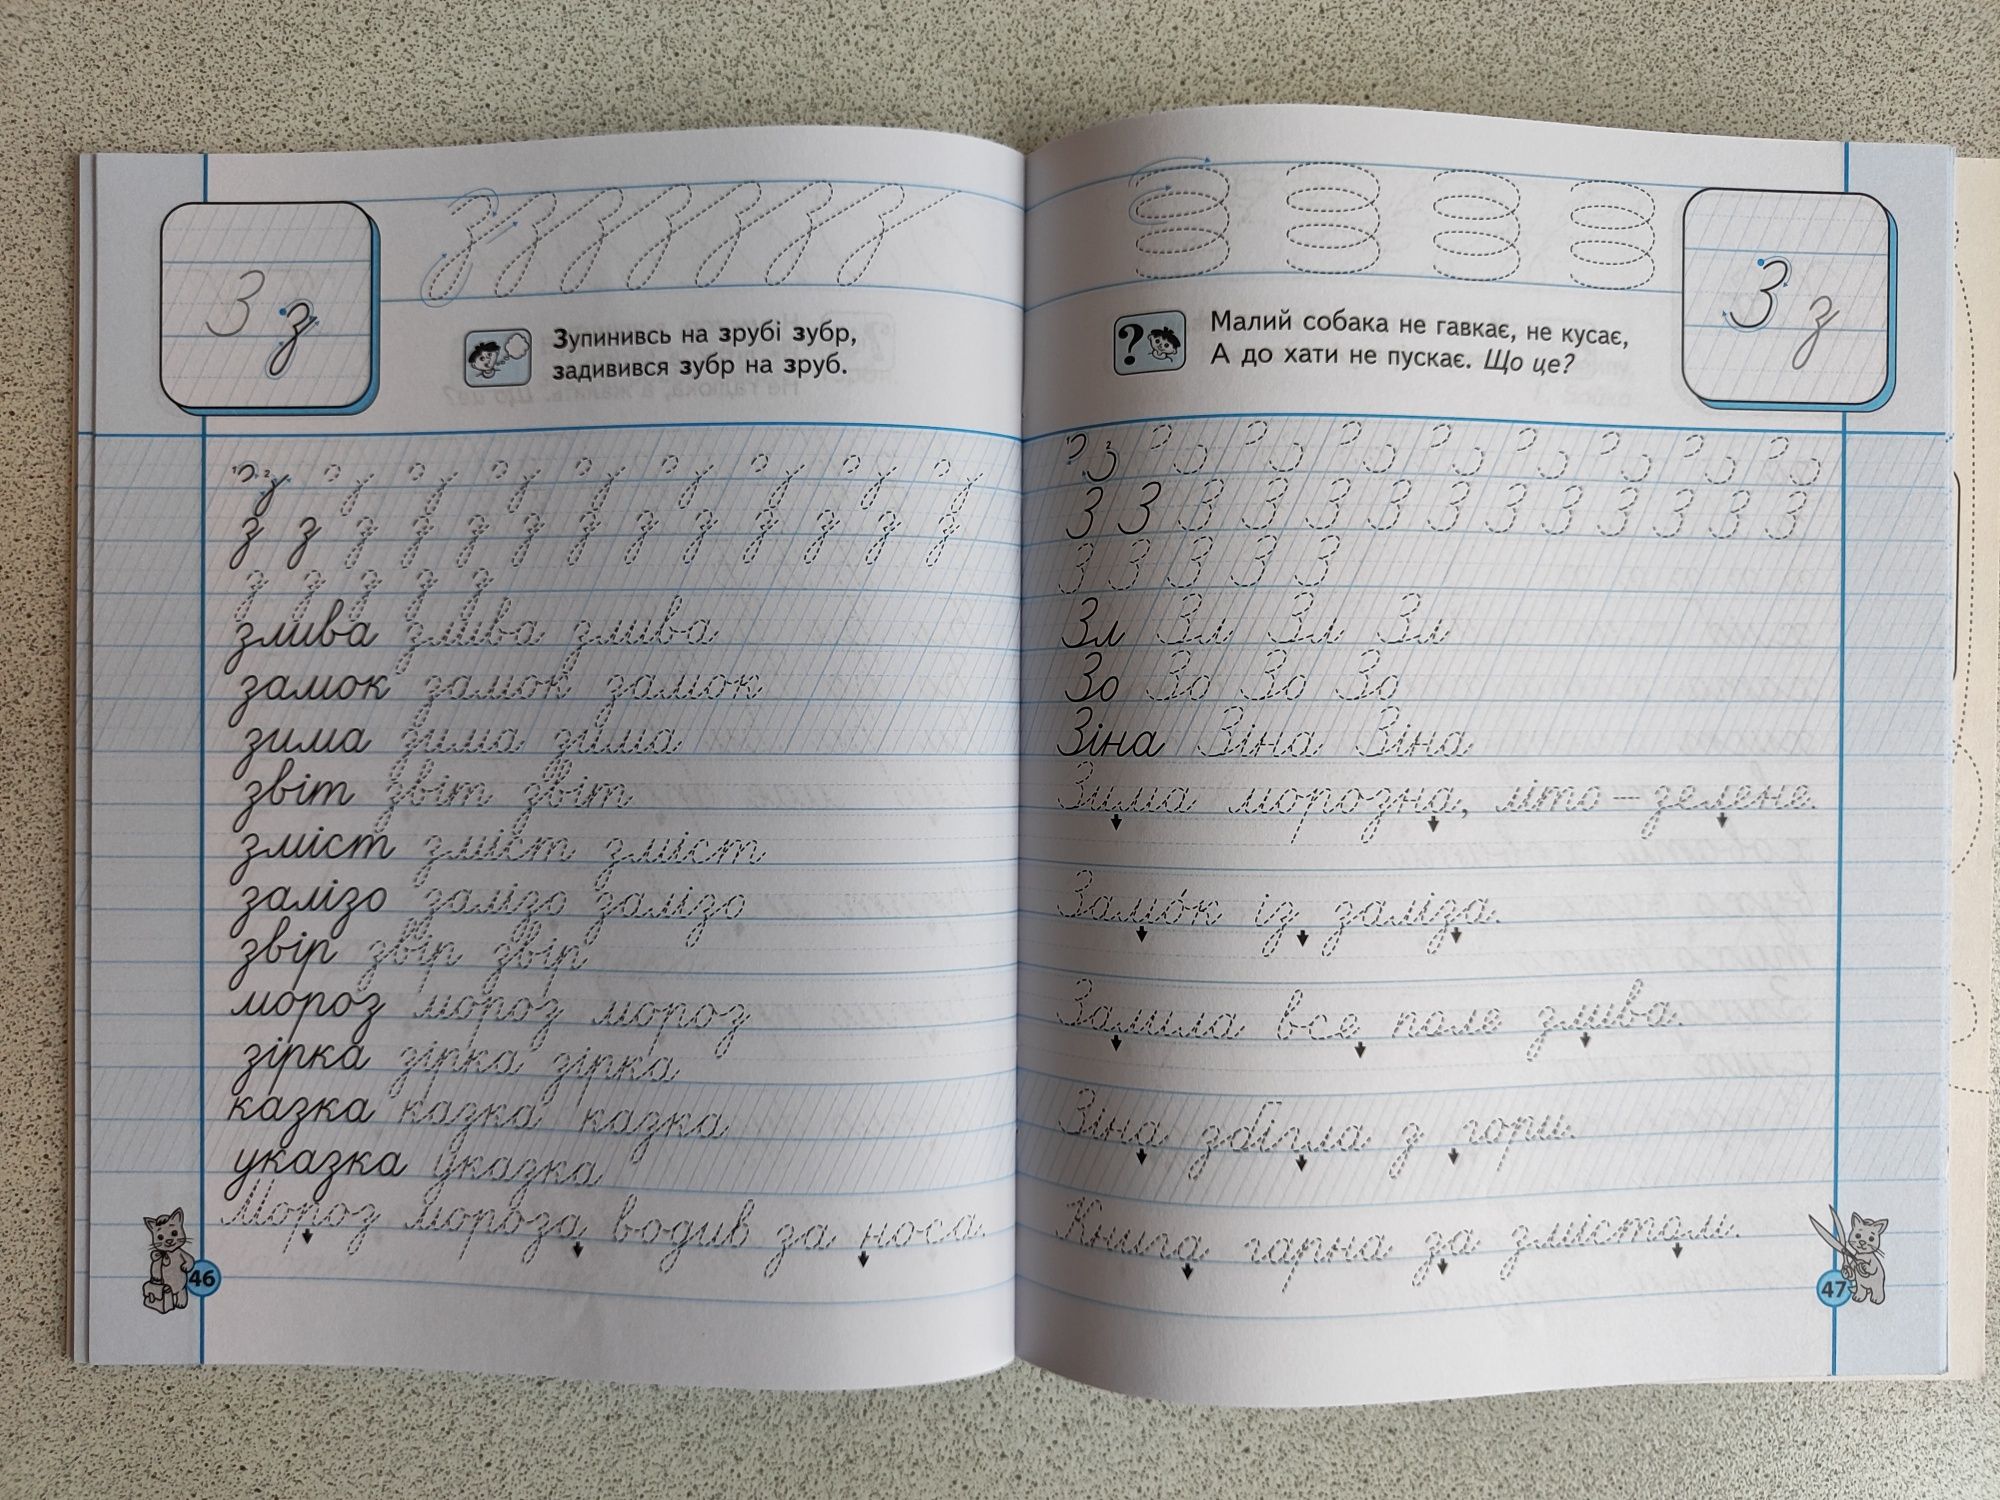 З з
Зупинивсь на зрубі зубр,
задивився зубр на зруб.
з з з з з з з з з з з з з
з з з з з
злива злива злива
замок замок замок
зима зима зима
звіт звіт звіт
зміст зміст зміст
залізо залізо залізо
звір звір звір
мороз мороз мороз
зірка зірка зірка
казка казка казка
указка указка
Мороз мороза водив за носа.
46
З з
Малий собака не гавкає, не кусає,
А до хати не пускає. Що це?
З З З З З З З З З З З З З
З З З З З
Зл Зл Зл Зл
Зо Зо Зо Зо
Зіна Зіна Зіна
Зима морозна, літо — зелене.
Замо́к із заліза.
Залила все поле злива.
Зіна збігла з гори.
Книга гарна за змістом.
47